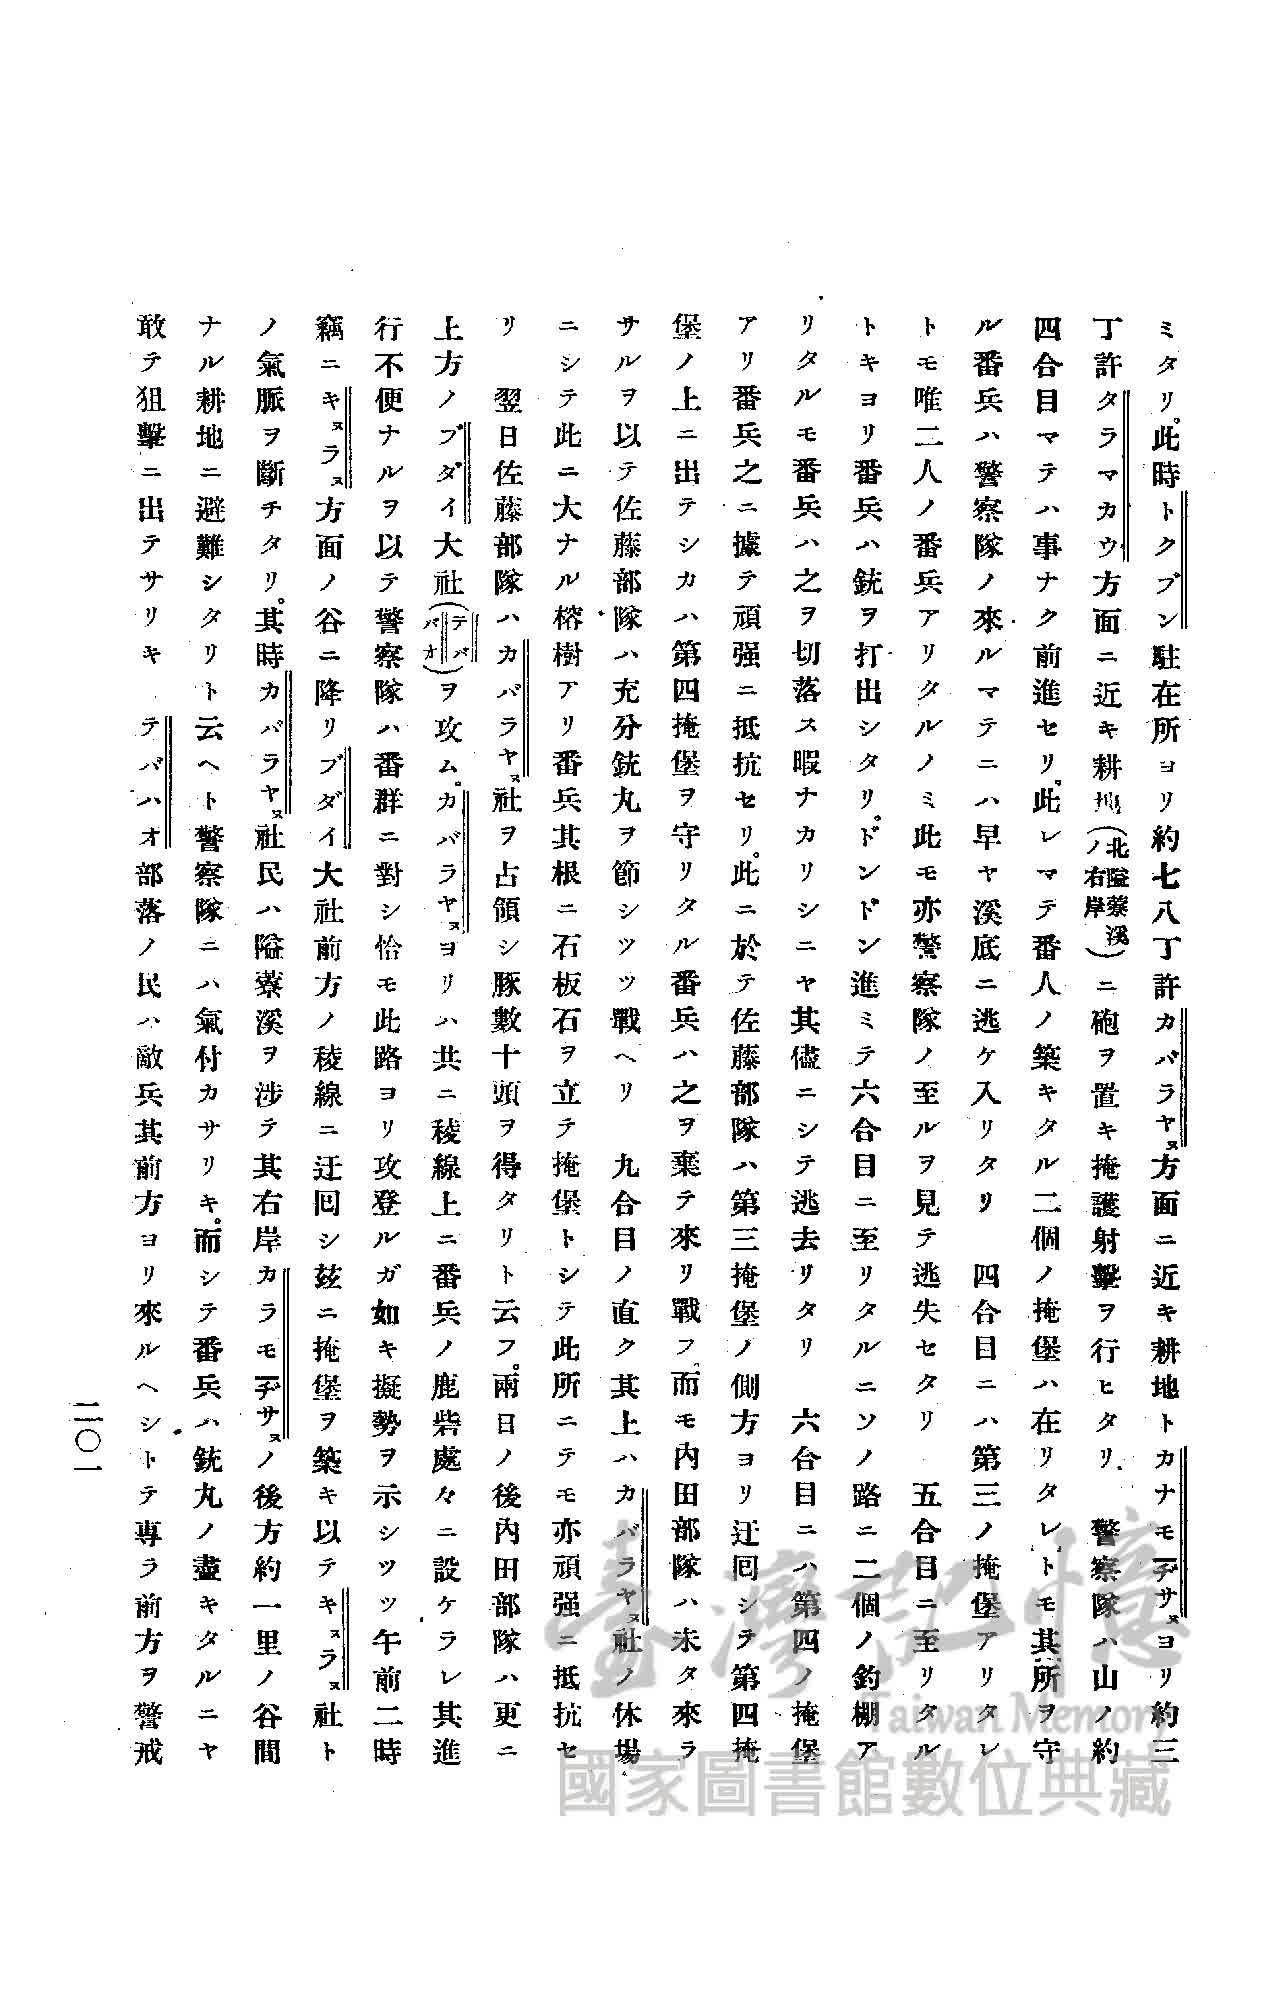 ミタリ。此時トクブン駐在所ヨリ約七八丁許カバラヤㇴ方面ニ近キ耕地トカナモヂサㇴヨリ約三
丁許タラマカウ方面ニ近キ耕地(北隘寮溪ノ右岸)ニ砲ヲ置キ掩護射擊ヲ行ヒタリ 警察隊ハ山ノ約
四合目マテハ事ナク前進セリ。此レマテ番人ノ築キタル二個ノ掩堡ハ在リタレトモ其所ヲ守
ル番兵ハ警察隊ノ來ルマテニハ早ヤ溪底ニ逃ケ入リタリ 四合目ニハ第三ノ掩堡アリタレ
トモ唯二人ノ番兵アリタルノミ此モ亦警察隊ノ至ルヲ見テ逃失セタリ 五合目ニ至リタル
トキヨリ番兵ハ銃ヲ打出シタリ。ドンドン進ミテ六合目ニ至リタルニソノ路ニ二個ノ釣棚ア
リタルモ番兵ハ之ヲ切落ス暇ナカリシニヤ其儘ニシテ逃去リタリ 六合目ニハ第四ノ掩堡
アリ番兵之ニ據テ頑强ニ抵抗セリ。此ニ於テ佐藤部隊ハ第三掩堡ノ側方ヨリ迂回シテ第四掩
堡ノ上ニ出テシカハ第四掩堡ヲ守リタル番兵ハ之ヲ棄テ來リ戰フ、而モ內田部隊ハ未タ來ラ
サルヲ以テ佐藤部隊ハ充分銃丸ヲ節シツツ戰ヘリ 九合目ノ直ク其上ハカバラヤㇴ社ノ休場
ニシテ此ニ大ナル榕樹アリ番兵其根ニ石板石ヲ立テ掩堡トシテ此所ニテモ亦頑强ニ抵抗セ
リ 翌日佐藤部隊ハカバラヤㇴ社ヲ占領シ豚數十頭ヲ得タリト云フ。兩日ノ後內田部隊ハ更ニ
上方ノブダイ大社(テバパオ)ヲ攻ム。カバラヤㇴヨリハ共ニ稜線上ニ番兵ノ鹿砦處々ニ設ケラレ其進
行不便ナルヲ以テ警察隊ハ番群ニ對シ恰モ此路ヨリ攻登ルガ如キ擬勢ヲ示シツツ午前二時
竊ニキㇴラㇴ方面ノ谷ニ降リブダイ大社前方ノ稜線ニ迂回シ茲ニ掩堡ヲ築キ以テキㇴラㇴ社ト
ノ氣脈ヲ斷チタリ。其時カバラヤㇴ社民ハ隘寮溪ヲ涉テ其右岸カラモヂサㇴノ後方約一里ノ谷間
ナル耕地ニ避難シタリト云ヘト警察隊ニハ氣付カサリキ。而シテ番兵ハ銃丸ノ盡キタルニヤ
敢テ狙擊ニ出テサリキ テバハオ部落ノ民ハ敵兵其前方ヨリ來ルヘシトテ專ラ前方ヲ警戒
二〇一
臺灣記憶
Taiwan Memory
國家圖書館數位典藏